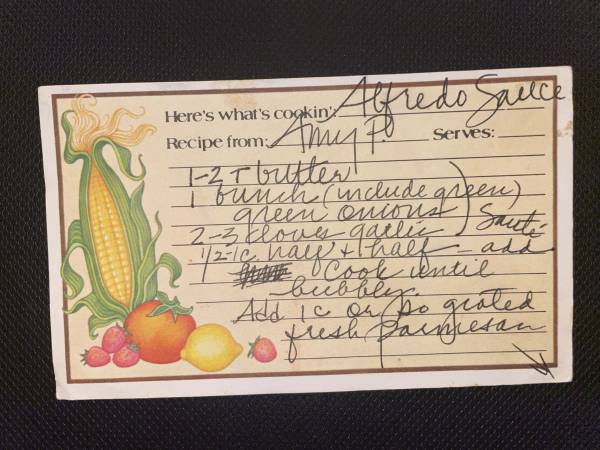 Here's what's cookin': Alfredo Sauce
Recipe from: Amy P. Serves:
1-2 T butter
1 bunch (include green)
green onions
2-3 cloves garlic Sauté
1/2-1c half + half add
Cook until
bubbly
Add 1c or so grated
fresh parmesan